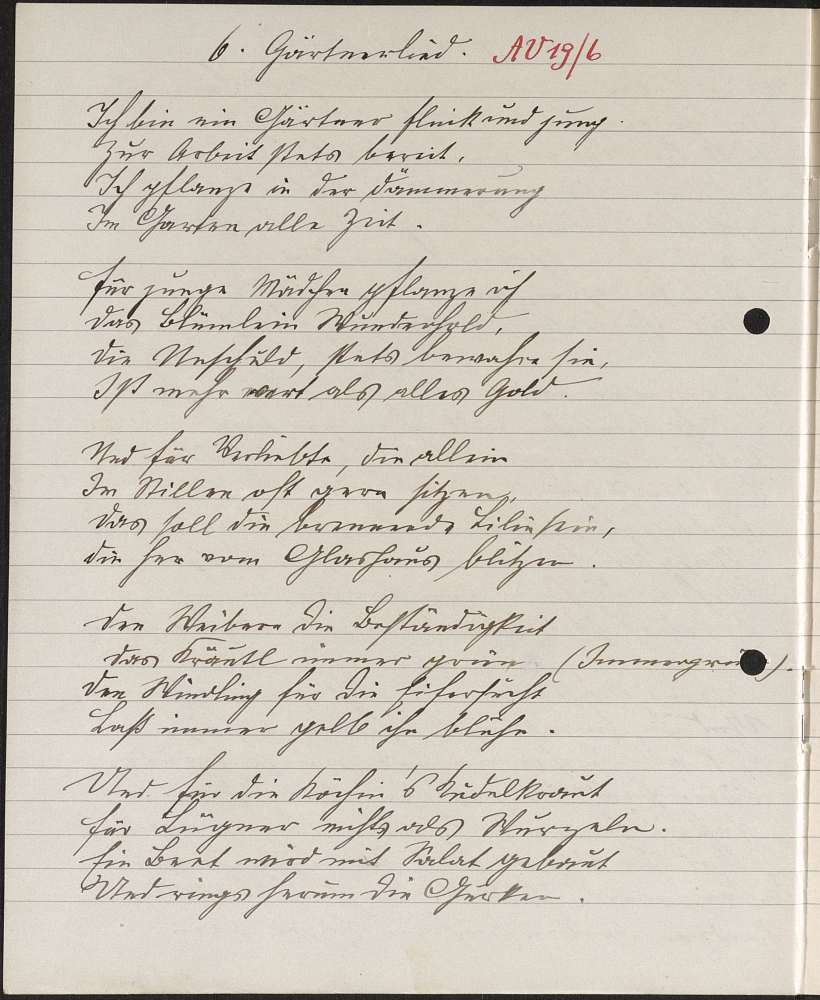 6. Gärtnerlied. AV 19/6
Ich bin ein Gärtner flink und jung.
Zur Arbeit stets bereit,
Ich pflanze in der Dämmerung
Im Garten alle Zeit.
Für junge Mädchen pflanze ich
Das Blümlein Wunderhold,
Die Unschuld, stets bewahre sie,
Ist mehr wert als alles Gold.
Und für Verliebte, die allein
Im Stillen oft gern sitzen,
Das soll die brennende Lilie sein,
die her vom Glashaus blitzen.
Den Weibern die Beständigkeit
Das Kräutl immer grün (Immergrün).
Den Windling für die Eifersucht
Laß immer gelb ihn blühn.
Und für die Köchin 's Kudelkraut
Für Lügner nichts als Wurzeln.
Ein Beet wird mit Salat gebaut
Und rings herum die Gurken.